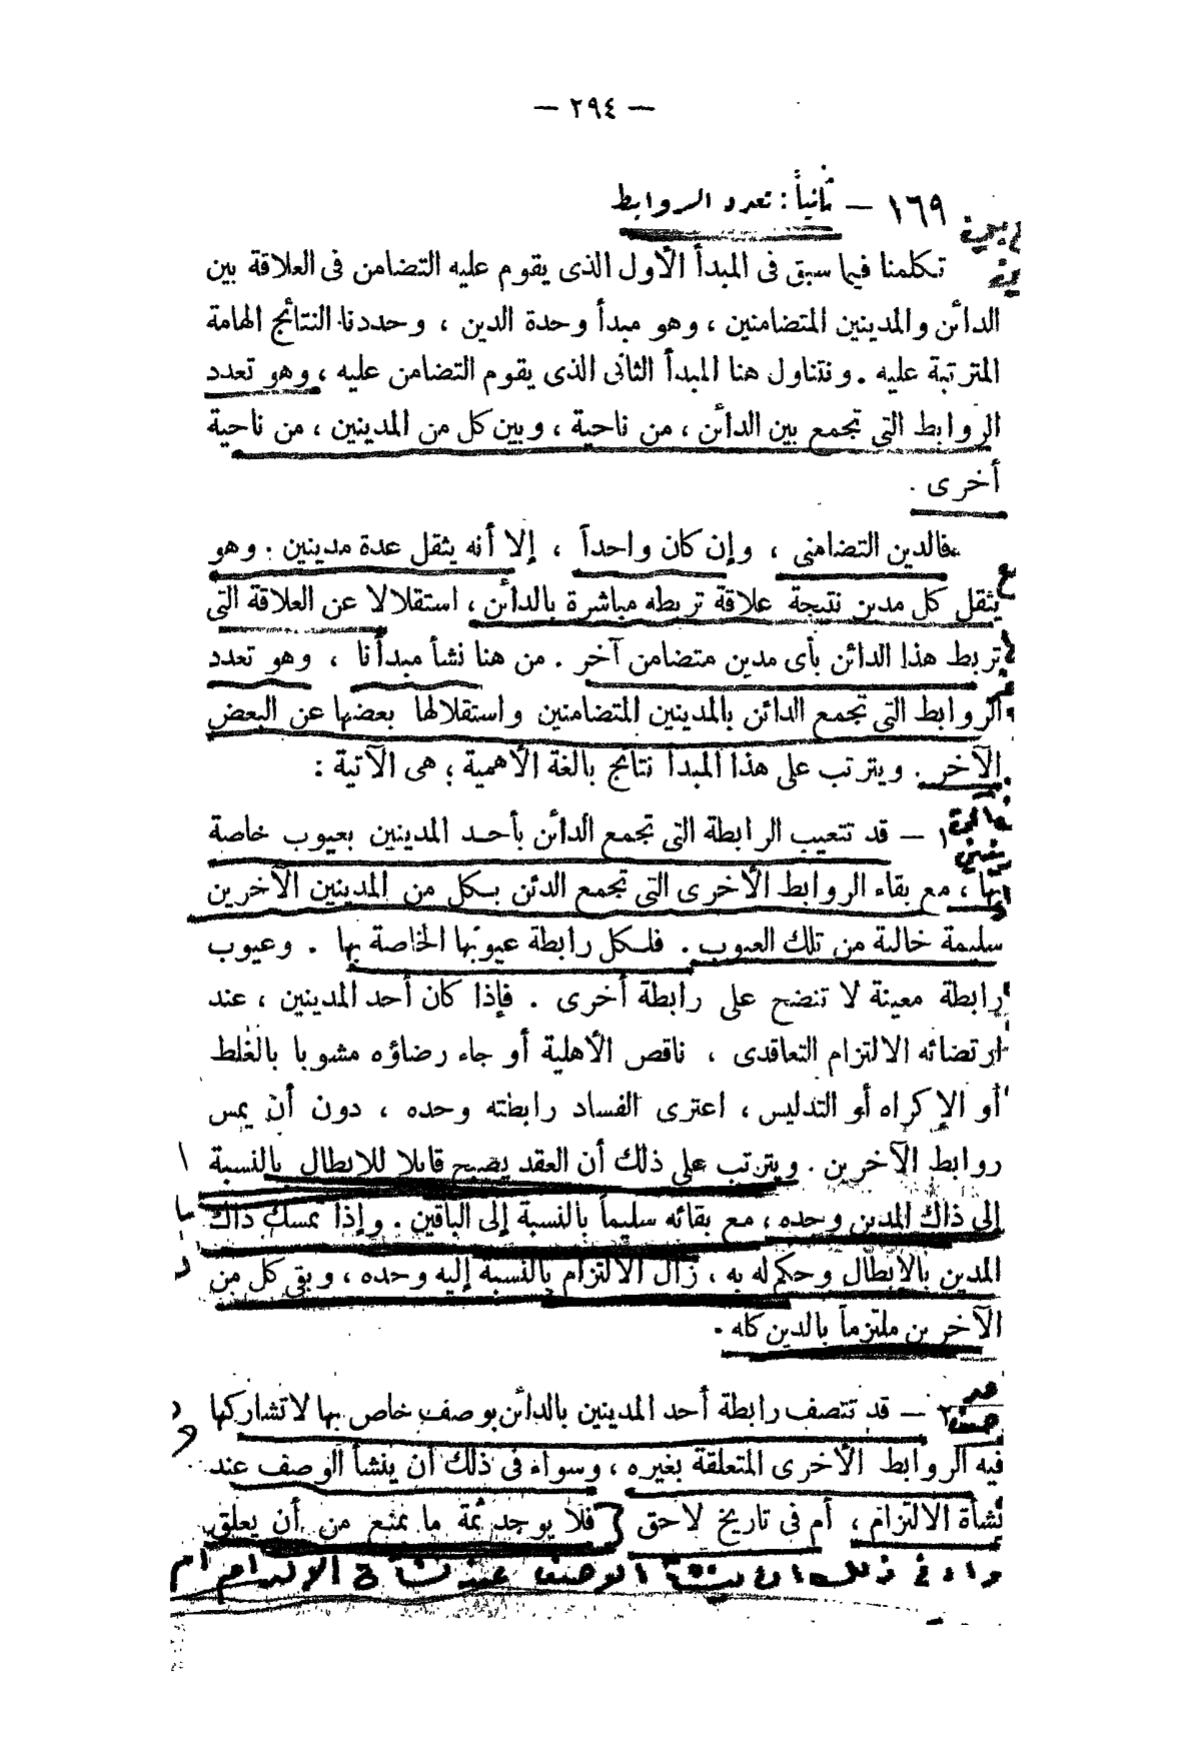 — ٢٩٤ —
١٦٩ — ثانياً : تعدد الروابط
تكلمنا فيما سبق فى المبدأ الأول الذى يقوم عليه التضامن فى العلاقة بين
الدائن والمدينين المتضامنين ، وهو مبدأ وحدة الدين ، وحددنا النتائج الهامة
المترتبة عليه . ونتناول هنا المبدأ الثانى الذى يقوم التضامن عليه ، وهو تعدد
الروابط التى تجمع بين الدائن ، من ناحية ، وبين كل من المدينين ، من ناحية
أخرى .
فالدين التضامنى ، وإن كان واحداً ، إلا أنه يثقل عدة مدينين . وهو
يثقل كل مدين نتيجة علاقة تربطه مباشرة بالدائن ، استقلالا عن العلاقة التى
تربط هذا الدائن بأى مدين متضامن آخر . من هنا نشأ مبدأنا ، وهو تعدد
الروابط التى تجمع الدائن بالمدينين المتضامنين واستقلالها بعضها عن البعض
الآخر . ويترتب على هذا المبدأ نتائج بالغة الأهمية ؛ هى الآتية :
١ — قد تتعيب الرابطة التى تجمع الدائن بأحد المدينين بعيوب خاصة
بها ، مع بقاء الروابط الأخرى التى تجمع الدئن بكل من المدينين الآخرين
سليمة خالية من تلك العيوب . فلكل رابطة عيوبها الخاصة بها . وعيوب
رابطة معينة لا تنضح على رابطة أخرى . فإذا كان أحد المدينين ، عند
ارتضائه الالتزام التعاقدى ، ناقص الأهلية أو جاء رضاؤه مشوبا بالغلط
أو الإكراه أو التدليس ، اعترى الفساد رابطته وحده ، دون أن يمس
روابط الآخرين . ويترتب على ذلك أن العقد يصبح قابلا للابطال بالنسبة
إلى ذاك المدين وحده ، مع بقائه سليماً بالنسبة إلى الباقين . وإذا تمسك ذاك
المدين بالابطال وحكم له به ، زال الالتزام بالنسبة إليه وحده ، وبقى كل من
الآخرين ملتزماً بالدين كله .
٢ — قد تتصف رابطة أحد المدينين بالدائن بوصف خاص بها لا تشاركها
فيه الروابط الأخرى المتعلقة بغيره ، وسواء فى ذلك أن ينشأ الوصف عند
نشأة الالتزام ، أم فى تاريخ لاحق فلا يوجد ثمة ما يمنع من أن يعلق
فى ذلك ان ينشأ الوصف عند نشأة الالتزام ام